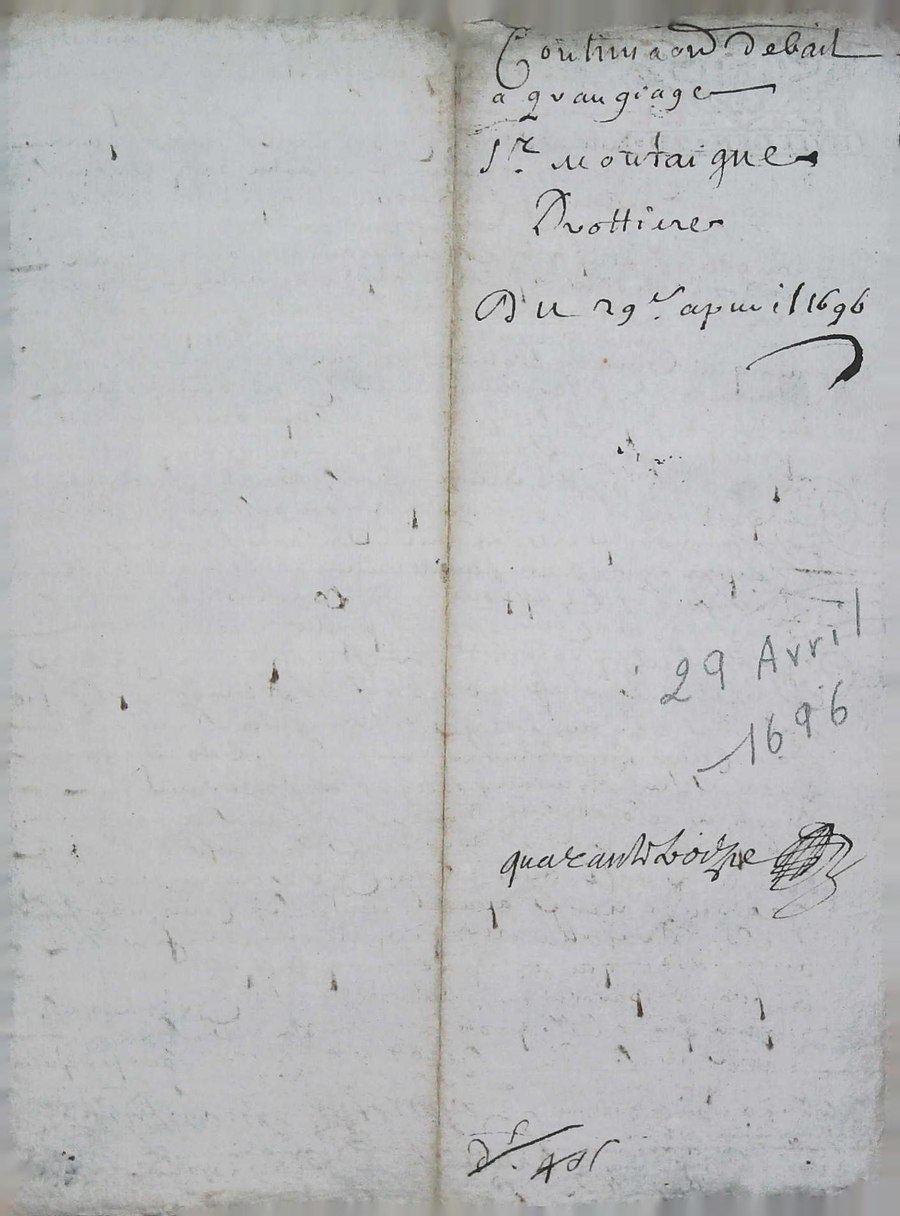 Continuaon de bail
a grangiage
Sr. Montaigne
Drottieres
Du 29e. apuril 1696
29 Avril
1696
quarante treize